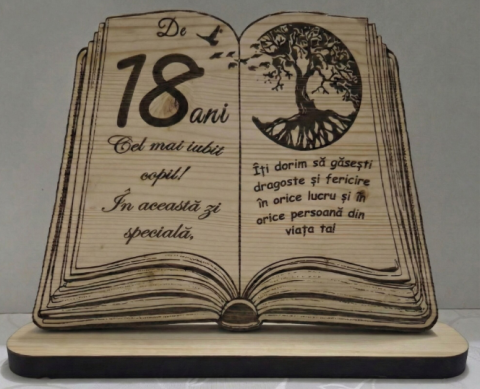 De
18 ani
Cel mai iubit
copil!
În această zi
specială,
Îți dorim să găsești
dragoste și fericire
în orice lucru și în
orice persoană din
viața ta!